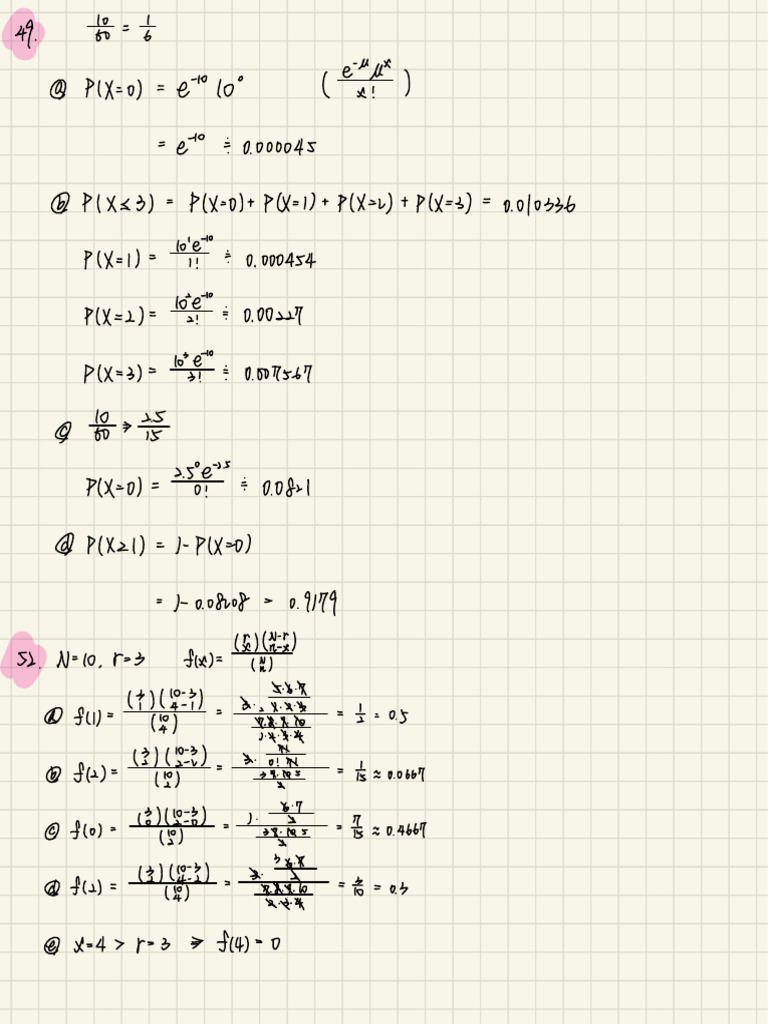 49. 10/60 = 1/6
ⓐ P(X=0) = e^-10 10^0 ( e^-μ μ^x / x! )
= e^-10 ≑ 0.000045
ⓑ P(X≤3) = P(X=0) + P(X=1) + P(X=2) + P(X=3) = 0.010336
P(X=1) = 10^1 e^-10 / 1! ≑ 0.000454
P(X=2) = 10^2 e^-10 / 2! ≑ 0.00227
P(X=3) = 10^3 e^-10 / 3! ≑ 0.007567
ⓒ 10/60 ⇒ 2.5/15
P(X=0) = 2.5^0 e^-2.5 / 0! ≑ 0.0821
ⓓ P(X≥1) = 1 - P(X=0)
= 1 - 0.08208 = 0.9179
52. N=10, r=3 f(x) = (r x)(N-r n-x) / (N n)
ⓐ f(1) = (3 1)(10-3 4-1) / (10 4) = = 1/2 = 0.5
ⓑ f(2) = (3 2)(10-3 2-2) / (10 2) = = 1/15 ≈ 0.0667
ⓒ f(0) = (3 0)(10-3 2-0) / (10 2) = = 7/15 ≈ 0.4667
ⓓ f(2) = (3 2)(10-3 4-2) / (10 4) = = 3/10 = 0.3
ⓔ x=4 > r=3 ⇒ f(4) = 0